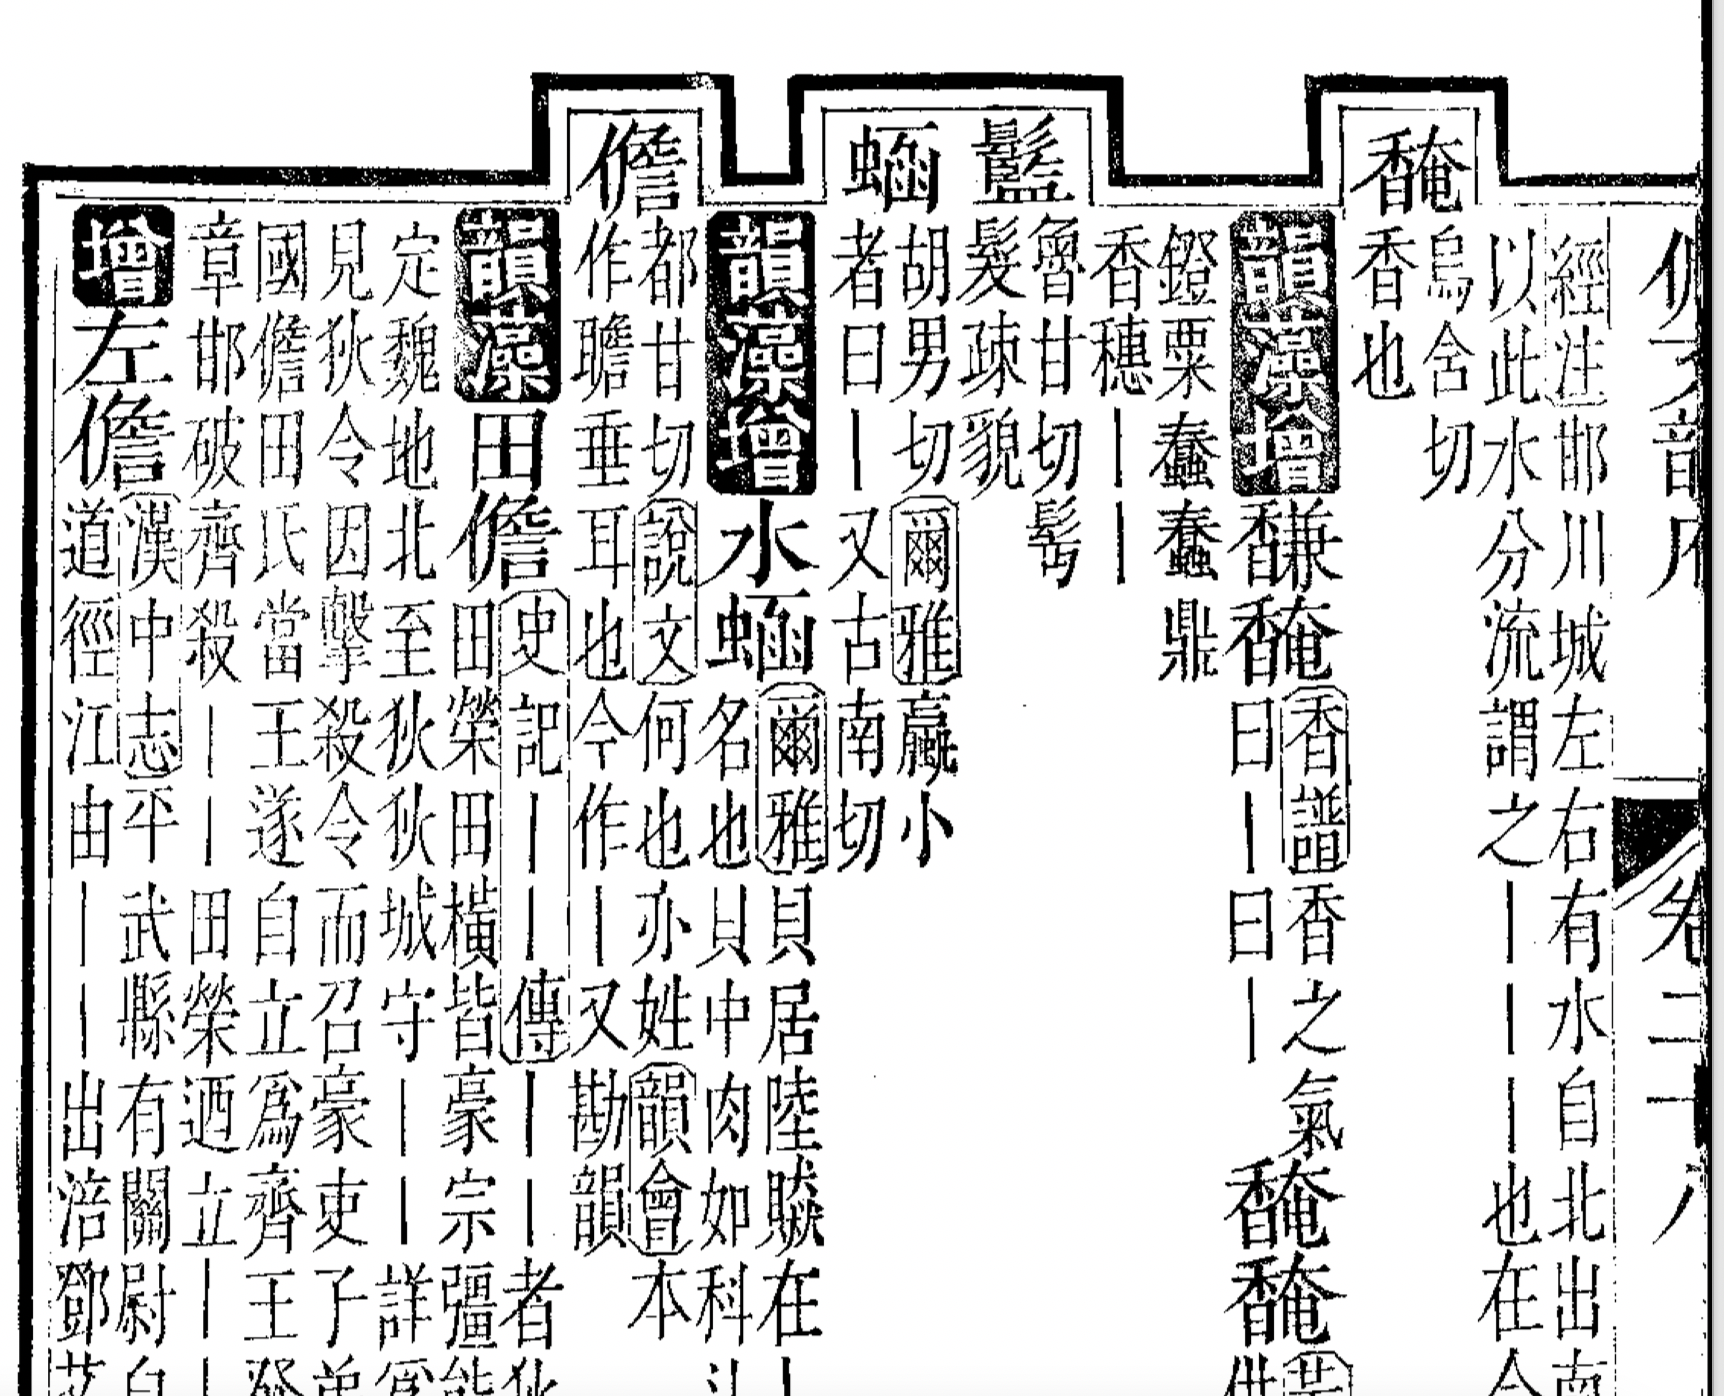 經注邯川城左右有水自北出南
以此水分流謂之｜｜｜也在今
䭓烏含切
香也
韻藻增
馦䭓香譜香之氣
曰｜曰｜
䭓䭓
鐙粟蠢蠢鼎
香穗｜｜
鬛魯甘切髩
髮疎貌
蜬胡男切爾雅蠃小
者曰｜又古南切
韻藻增
水蜬爾雅貝居陸贆在｜
名也貝中肉如科斗
儋都甘切說文何也亦姓韻會本
作聸垂耳也今作｜又勘韻
韻藻
田儋史記｜｜傳｜｜者狄
田榮田橫皆豪宗彊能
定魏地北至狄狄城守｜｜詳爲
見狄令因擊殺令而召豪吏子弟
國儋田氏當王遂自立爲齊王發
章邯破齊殺｜｜田榮迺立｜｜
增
左儋漢中志平武縣有關尉自
道徑江由｜｜出涪鄧艾